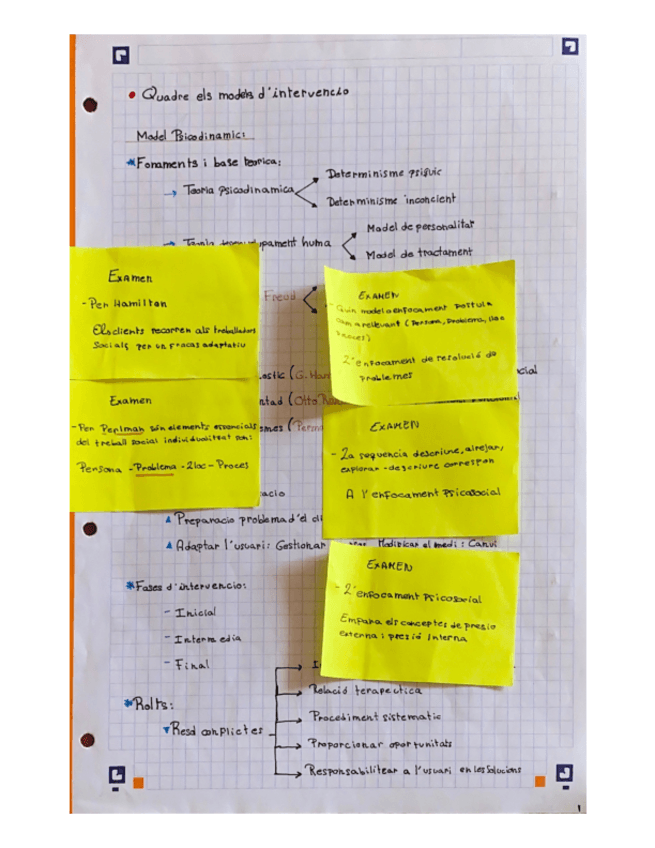 Quadre els models d'intervencio
Model Psicodinamic:
Fonaments i base teorica:
→ Teoria psicodinamica
Determinisme psiquic
Determinisme inconcient
pament huma
Model de personalitat
Model de tractament
Examen
- Per Hamilton
Els clients recorren als treballadors
Socials per un procas adaptatiu
Freud
EXAMEN
- Quin model o enfocament postula
com a rellevant (Persona, Problema, lloc
Proces)
L'enfocament de resolució de
problemes
Examen
- Per Perlman són elements essencials
del treball social individualitzat son:
Persona - Problema - Lloc - Proces
EXAMEN
- La sequencia descriure, airejar,
explorar - descriure correspon
A l'enfocament Psicosocial
Preparacio problema d'el cli
Adaptar l'usuari: Gestionar
Modificar el medi: Canvi
EXAMEN
- L'enfocament Psicosocial
Empara els conceptes de presio
externa i presió Interna
Fases d'intervencio:
- Inicial
- Intermedia
- Final
Rolts:
Resd conflictes
Relació terapeutica
Procediment sistematic
Proporcionar oportunitats
Responsabilitzar a l'usuari en les Solucions
1